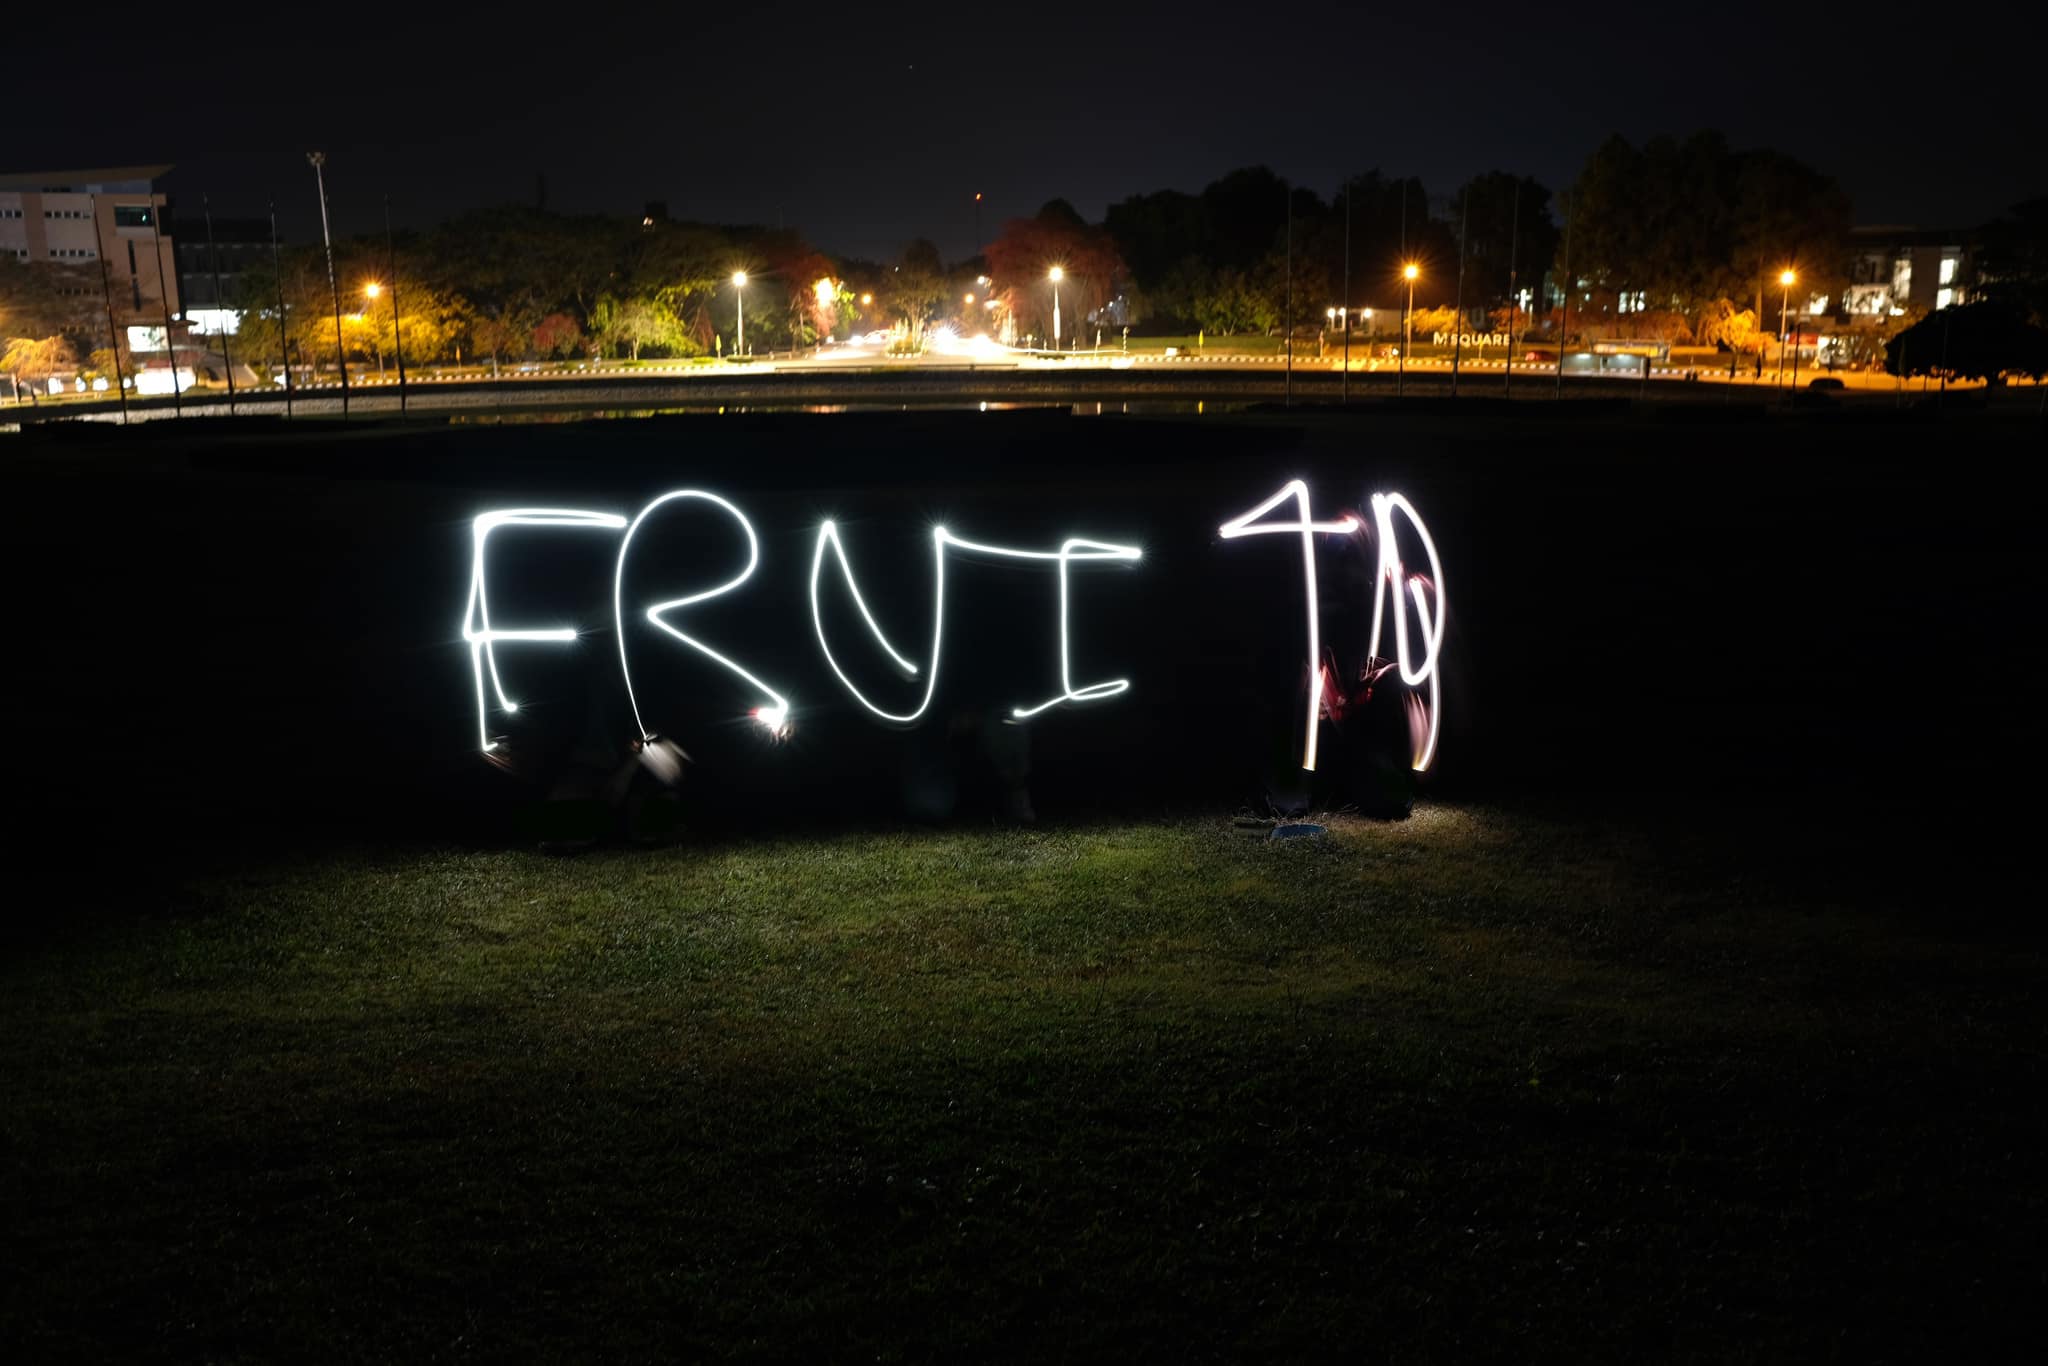 M SQUARE
FRUI